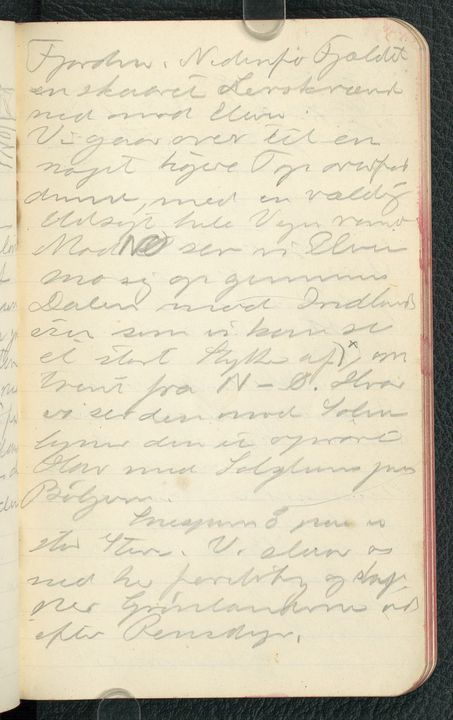 Fjorden. Nedenfor Fjældet
en skaaret Lerskrænt
ned mod Elven.
Vi gaar over til en
noget højere Top overfor
denne, med en vældig
Udsigt hele Vejen rundt
Mod NO ser vi Elven
sno sig op gennem
Dalen mod Indlands
isen som vi kan se
et stort Stykke af, om
trent fra N – O. Hvor
vi se den mod Solen
ligner den et oprørt
Hav med Solglans paa
Bølgerne.
paa en
stor Sten. Vi slaar os
ned her foreløbig og
Grønlænderne ud
efter Rensdyr.